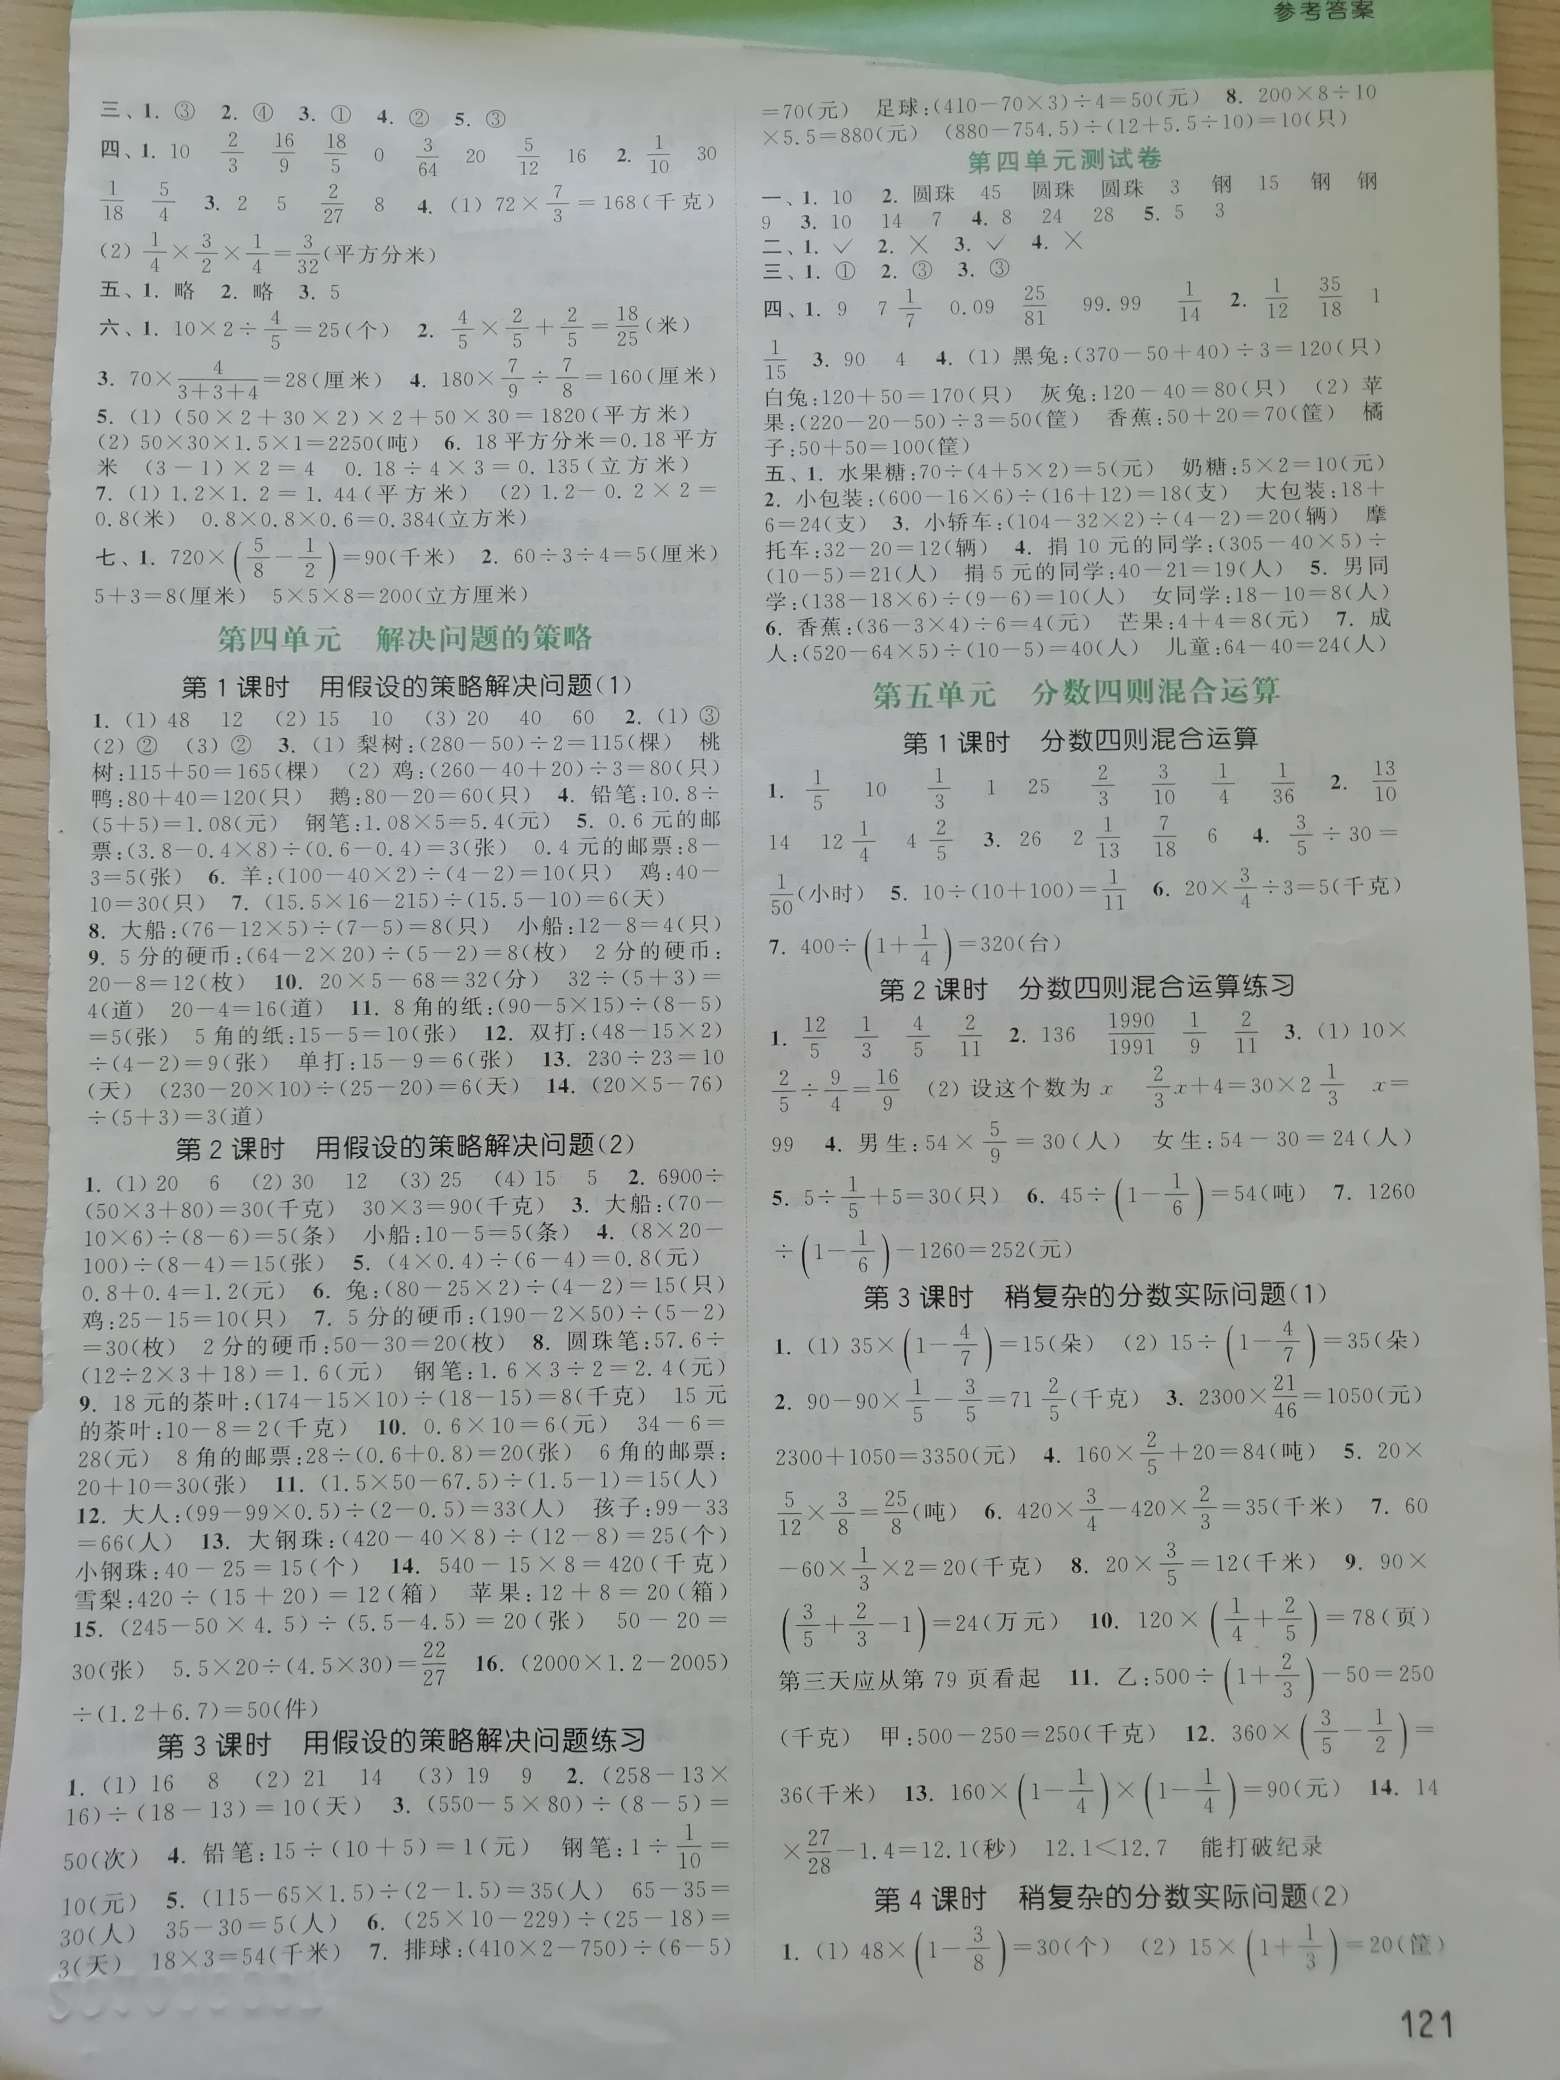 参考答案
三、1. ③ 2. ④ 3. ① 4. ② 5. ③
四、1. 10 2/3 16/9 18/5 0 3/64 20 5/12 16 2. 1/10 30
1/18 5/4 3. 2 5 2/27 8 4. (1) 72×7/3=168(千克)
(2) 1/4×3/2×1/4=3/32(平方分米)
五、1. 略 2. 略 3. 5
六、1. 10×2÷4/5=25(个) 2. 4/5×2/5+2/5=18/25(米)
3. 70×4/(3+3+4)=28(厘米) 4. 180×7/9÷7/8=160(厘米)
5. (1) (50×2+30×2)×2+50×30=1820(平方米)
(2) 50×30×1.5×1=2250(吨) 6. 18平方分米=0.18平方
米 (3-1)×2=4 0.18÷4×3=0.135(立方米)
7. (1) 1.2×1.2=1.44(平方米) (2) 1.2-0.2×2=
0.8(米) 0.8×0.8×0.6=0.384(立方米)
七、1. 720×(5/8-1/2)=90(千米) 2. 60÷3÷4=5(厘米)
5+3=8(厘米) 5×5×8=200(立方厘米)
第四单元 解决问题的策略
第1课时 用假设的策略解决问题(1)
1. (1) 48 12 (2) 15 10 (3) 20 40 60 2. (1) ③
(2) ② (3) ② 3. (1) 梨树:(280-50)÷2=115(棵) 桃
树:115+50=165(棵) (2) 鸡:(260-40+20)÷3=80(只)
鸭:80+40=120(只) 鹅:80-20=60(只) 4. 铅笔:10.8÷
(5+5)=1.08(元) 钢笔:1.08×5=5.4(元) 5. 0.6元的邮
票:(3.8-0.4×8)÷(0.6-0.4)=3(张) 0.4元的邮票:8-
3=5(张) 6. 羊:(100-40×2)÷(4-2)=10(只) 鸡:40-
10=30(只) 7. (15.5×16-215)÷(15.5-10)=6(天)
8. 大船:(76-12×5)÷(7-5)=8(只) 小船:12-8=4(只)
9. 5分的硬币:(64-2×20)÷(5-2)=8(枚) 2分的硬币:
20-8=12(枚) 10. 20×5-68=32(分) 32÷(5+3)=
4(道) 20-4=16(道) 11. 8角的纸:(90-5×15)÷(8-5)
=5(张) 5角的纸:15-5=10(张) 12. 双打:(48-15×2)
÷(4-2)=9(张) 单打:15-9=6(张) 13. 230÷23=10
(天) (230-20×10)÷(25-20)=6(天) 14. (20×5-76)
÷(5+3)=3(道)
第2课时 用假设的策略解决问题(2)
1. (1) 20 6 (2) 30 12 (3) 25 (4) 15 5 2. 6900÷
(50×3+80)=30(千克) 30×3=90(千克) 3. 大船:(70-
10×6)÷(8-6)=5(条) 小船:10-5=5(条) 4. (8×20-
100)÷(8-4)=15(张) 5. (4×0.4)÷(6-4)=0.8(元)
0.8+0.4=1.2(元) 6. 兔:(80-25×2)÷(4-2)=15(只)
鸡:25-15=10(只) 7. 5分的硬币:(190-2×50)÷(5-2)
=30(枚) 2分的硬币:50-30=20(枚) 8. 圆珠笔:57.6÷
(12÷2×3+18)=1.6(元) 钢笔:1.6×3÷2=2.4(元)
9. 18元的茶叶:(174-15×10)÷(18-15)=8(千克) 15元
的茶叶:10-8=2(千克) 10. 0.6×10=6(元) 34-6=
28(元) 8角的邮票:28÷(0.6+0.8)=20(张) 6角的邮票:
20+10=30(张) 11. (1.5×50-67.5)÷(1.5-1)=15(人)
12. 大人:(99-99×0.5)÷(2-0.5)=33(人) 孩子:99-33
=66(人) 13. 大钢珠:(420-40×8)÷(12-8)=25(个)
小钢珠:40-25=15(个) 14. 540-15×8=420(千克)
雪梨:420÷(15+20)=12(箱) 苹果:12+8=20(箱)
15. (245-50×4.5)÷(5.5-4.5)=20(张) 50-20=
30(张) 5.5×20÷(4.5×30)=22/27 16. (2000×1.2-2005)
÷(1.2+6.7)=50(件)
第3课时 用假设的策略解决问题练习
1. (1) 16 8 (2) 21 14 (3) 19 9 2. (258-13×
16)÷(18-13)=10(天) 3. (550-5×80)÷(8-5)=
50(次) 4. 铅笔:15÷(10+5)=1(元) 钢笔:1÷1/10=
10(元) 5. (115-65×1.5)÷(2-1.5)=35(人) 65-35=
30(人) 35-30=5(人) 6. (25×10-229)÷(25-18)=
3(天) 18×3=54(千米) 7. 排球:(410×2-750)÷(6-5)
=70(元) 足球:(410-70×3)÷4=50(元) 8. 200×8÷10
×5.5=880(元) (880-754.5)÷(12+5.5÷10)=10(只)
第四单元测试卷
一、1. 10 2. 圆珠 45 圆珠 圆珠 3 钢 15 钢 钢
9 3. 10 14 7 4. 8 24 28 5. 5 3
二、1. ✓ 2. × 3. ✓ 4. ×
三、1. ① 2. ③ 3. ③
四、1. 9 7 1/7 0.09 25/81 99.99 1/14 2. 1/12 35/18 1
1/15 3. 90 4 4. (1) 黑兔:(370-50+40)÷3=120(只)
白兔:120+50=170(只) 灰兔:120-40=80(只) (2) 苹
果:(220-20-50)÷3=50(筐) 香蕉:50+20=70(筐) 橘
子:50+50=100(筐)
五、1. 水果糖:70÷(4+5×2)=5(元) 奶糖:5×2=10(元)
2. 小包装:(600-16×6)÷(16+12)=18(支) 大包装:18+
6=24(支) 3. 小轿车:(104-32×2)÷(4-2)=20(辆) 摩
托车:32-20=12(辆) 4. 捐10元的同学:(305-40×5)÷
(10-5)=21(人) 捐5元的同学:40-21=19(人) 5. 男同
学:(138-18×6)÷(9-6)=10(人) 女同学:18-10=8(人)
6. 香蕉:(36-3×4)÷6=4(元) 芒果:4+4=8(元) 7. 成
人:(520-64×5)÷(10-5)=40(人) 儿童:64-40=24(人)
第五单元 分数四则混合运算
第1课时 分数四则混合运算
1. 1/5 10 1/3 1 25 2/3 3/10 1/4 1/36 2. 13/10
14 12 1/4 4 2/5 3. 26 2 1/13 7/18 6 4. 3/5÷30=
1/50(小时) 5. 10÷(10+100)=1/11 6. 20×3/4÷3=5(千克)
7. 400÷(1+1/4)=320(台)
第2课时 分数四则混合运算练习
1. 12/5 1/3 4/5 2/11 2. 136 1990/1991 1/9 2/11 3. (1) 10×
2/5÷9/4=16/9 (2) 设这个数为x 2/3x+4=30×2 1/3 x=
99 4. 男生:54×5/9=30(人) 女生:54-30=24(人)
5. 5÷1/5+5=30(只) 6. 45÷(1-1/6)=54(吨) 7. 1260
÷(1-1/6)-1260=252(元)
第3课时 稍复杂的分数实际问题(1)
1. (1) 35×(1-4/7)=15(朵) (2) 15÷(1-4/7)=35(朵)
2. 90-90×1/5-3/5=71 2/5(千克) 3. 2300×21/46=1050(元)
2300+1050=3350(元) 4. 160×2/5+20=84(吨) 5. 20×
5/12×3/8=25/8(吨) 6. 420×3/4-420×2/3=35(千米) 7. 60
-60×1/3×2=20(千克) 8. 20×3/5=12(千米) 9. 90×
(3/5+2/3-1)=24(万元) 10. 120×(1/4+2/5)=78(页)
第三天应从第79页看起 11. 乙:500÷(1+2/3)-50=250
(千克) 甲:500-250=250(千克) 12. 360×(3/5-1/2)=
36(千米) 13. 160×(1-1/4)×(1-1/4)=90(元) 14. 14
×27/28-1.4=12.1(秒) 12.1<12.7 能打破纪录
第4课时 稍复杂的分数实际问题(2)
1. (1) 48×(1-3/8)=30(个) (2) 15×(1+1/3)=20(筐)
121